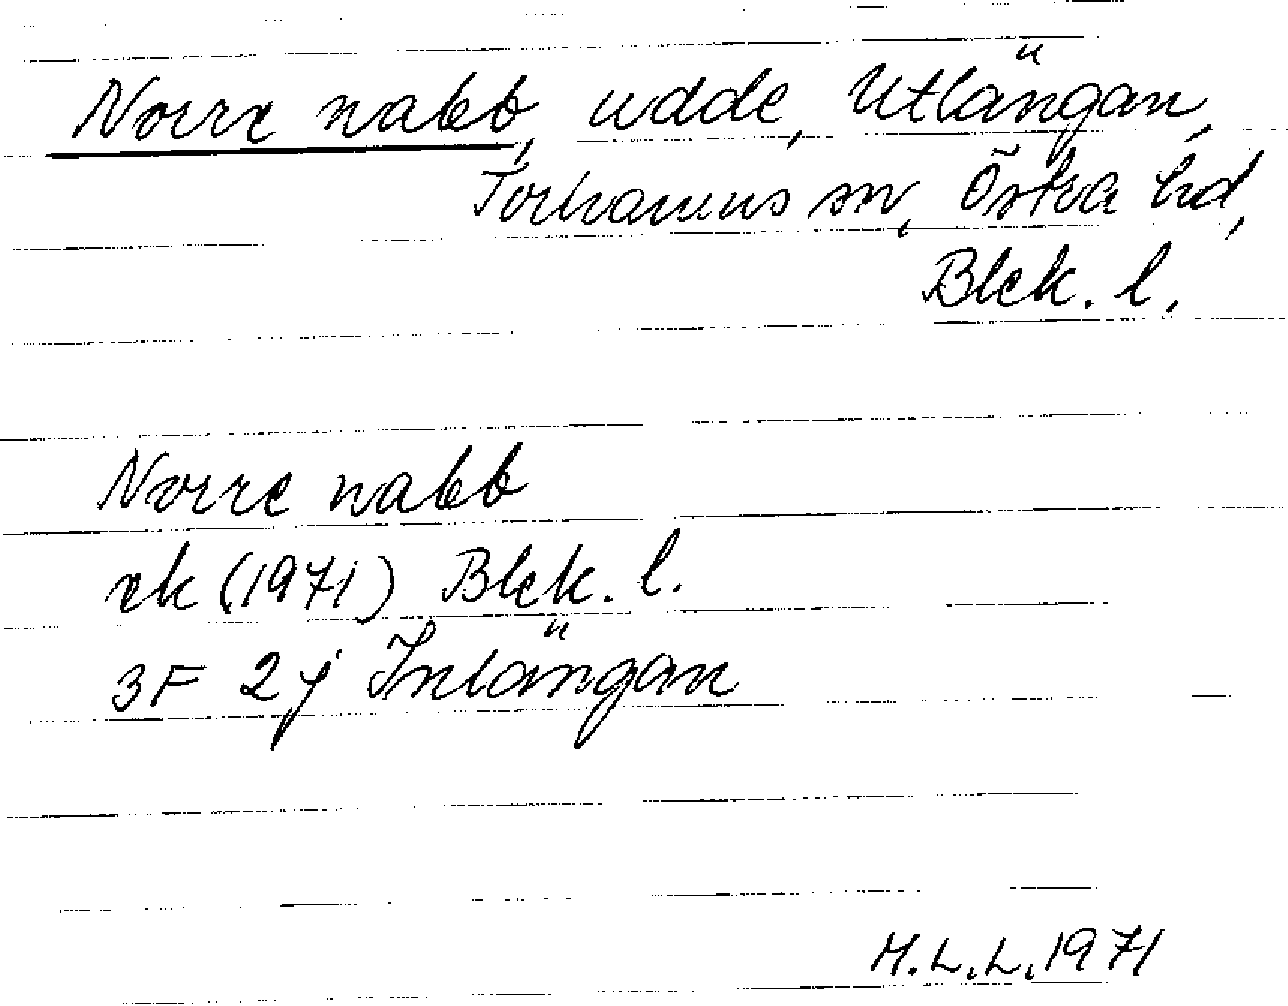 Norre nabb, udde, Utlängan,
Torhamns sn, Östra hd,
Blek. l.
Norre nabb
ek (1971) Blek. l.
3F 2j Inlängan
M.L.L. 1971